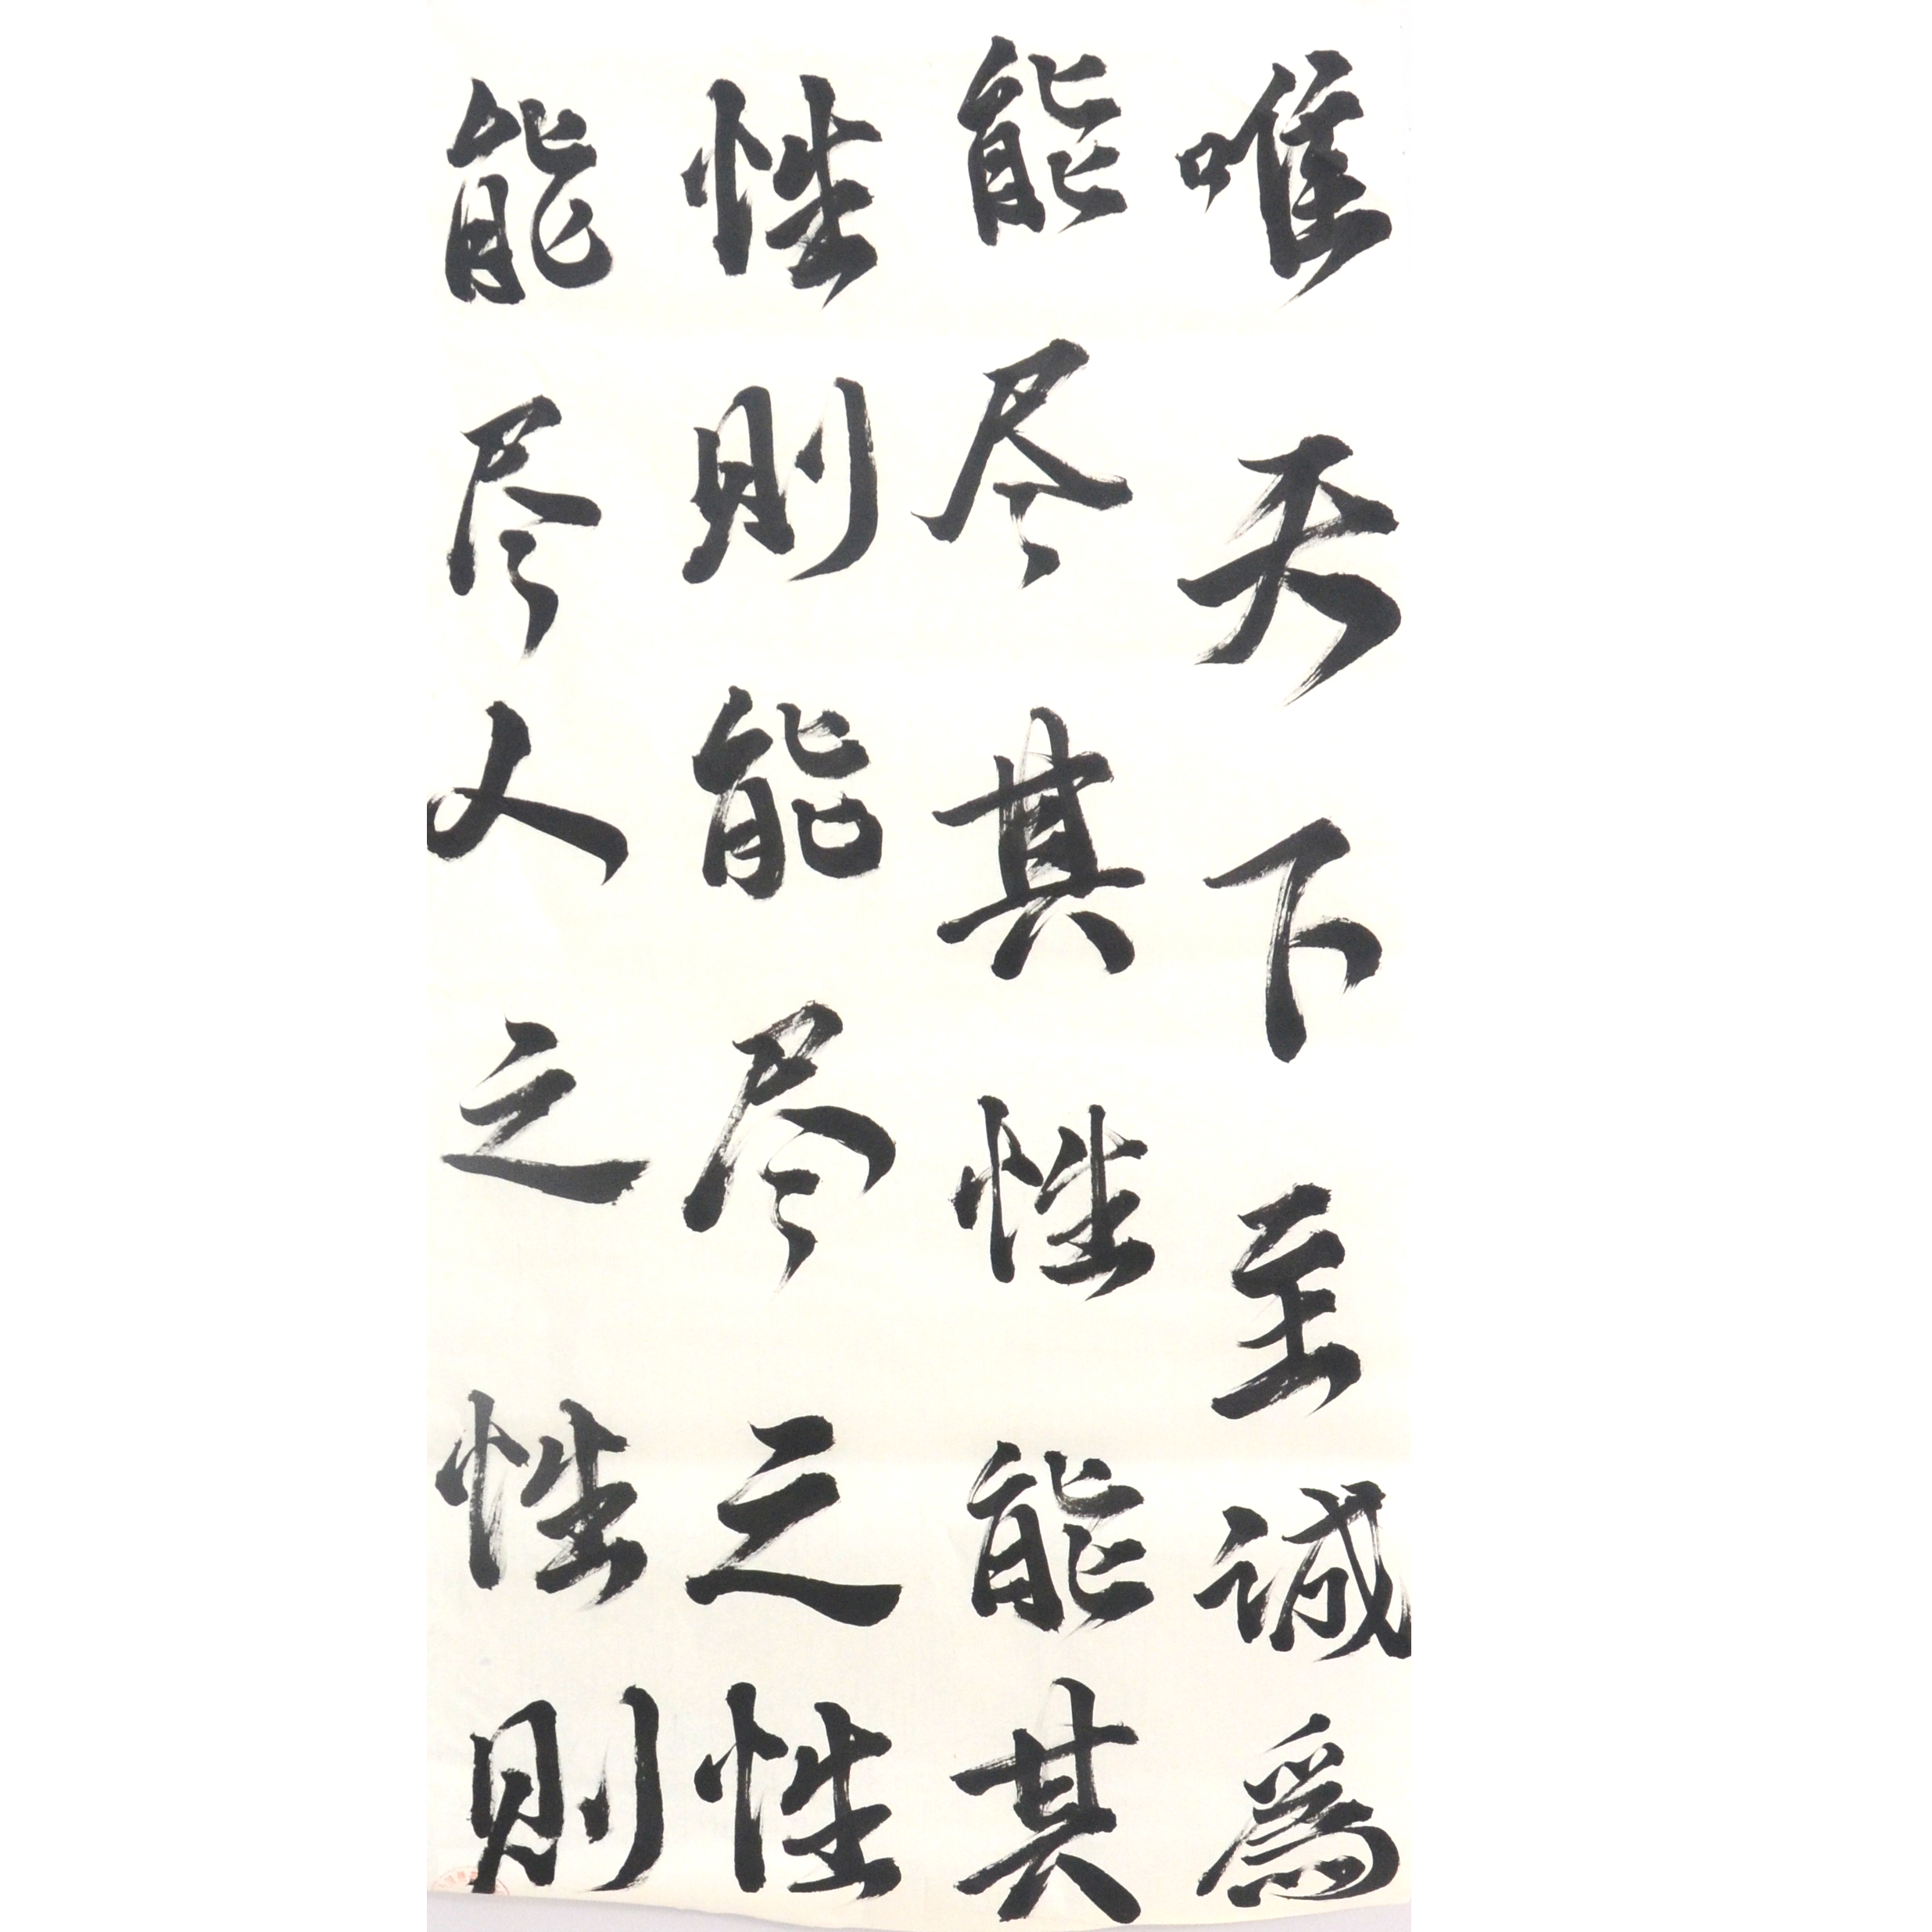 唯天下至诚為
能尽其性能其
性則能尽之性
能尽人之性則